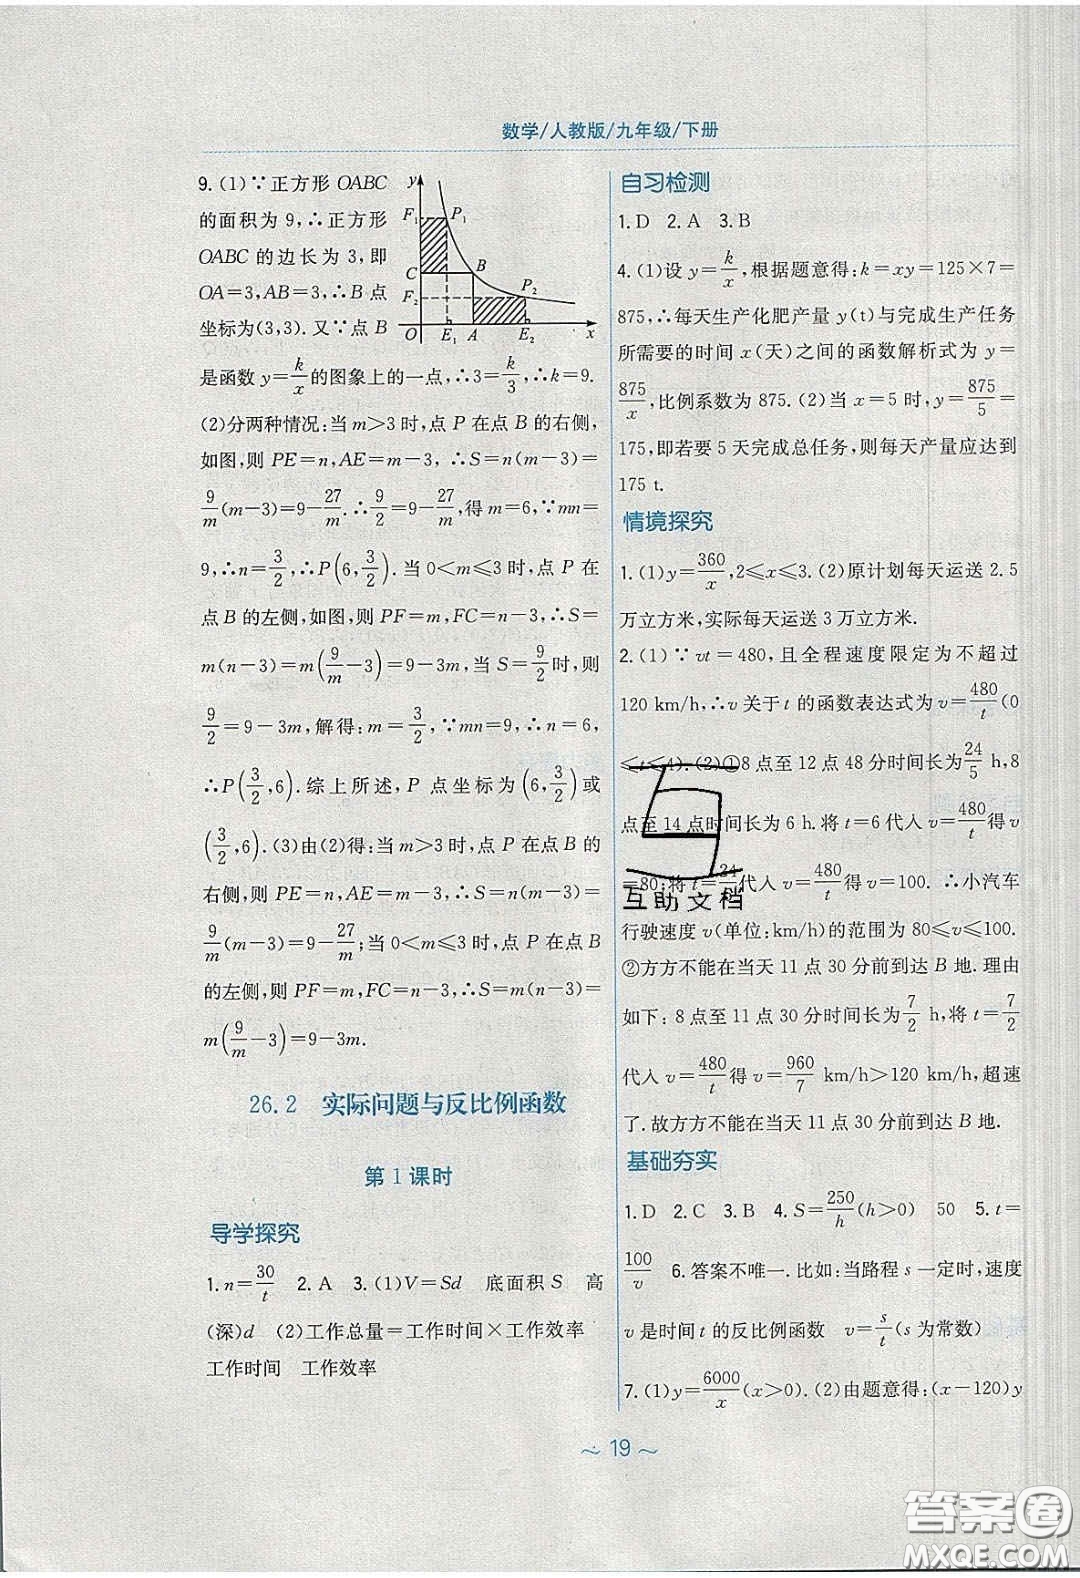 数学/人教版/九年级/下册
9. (1)∵正方形 OABC
的面积为 9,∴正方形
OABC 的边长为 3,即
OA=3,AB=3,∴B 点
坐标为(3,3). 又∵点 B
y
F₁
P₁
C
B
F₂
P₂
O
E₁
A
E₂
x
是函数 y=k/x 的图象上的一点,∴3=k/3,∴k=9.
(2)分两种情况:当 m>3 时,点 P 在点 B 的右侧,
如图,则 PE=n,AE=m-3, ∴S=n(m-3)=
9/m(m-3)=9-27/m.∴9/2=9-27/m,得 m=6,∵mn=
9,∴n=3/2,∴P(6,3/2). 当 0<m≤3 时,点 P 在
点 B 的左侧,如图,则 PF=m,FC=n-3,∴S=
m(n-3)=m(9/m-3)=9-3m,当 S=9/2时,则
9/2=9-3m,解得:m=3/2,∵mn=9,∴n=6,
∴P(3/2,6). 综上所述,P 点坐标为(6,3/2)或
(3/2,6). (3)由(2)得:当 m>3 时,点 P 在点 B 的
右侧,则 PE=n,AE=m-3,∴S=n(m-3)=
9/m(m-3)=9-27/m;当 0<m≤3 时,点 P 在点 B
的左侧,则 PF=m,FC=n-3,∴S=m(n-3)=
m(9/m-3)=9-3m.
26.2 实际问题与反比例函数
第 1 课时
导学探究
1. n=30/t 2. A 3. (1)V=Sd 底面积 S 高
(深)d (2)工作总量=工作时间×工作效率
工作时间 工作效率
自习检测
1. D 2. A 3. B
4. (1)设 y=k/x,根据题意得:k=xy=125×7=
875,∴每天生产化肥产量 y(t)与完成生产任务
所需要的时间 x(天)之间的函数解析式为 y=
875/x,比例系数为 875. (2)当 x=5 时,y=875/5=
175,即若要 5 天完成总任务,则每天产量应达到
175 t.
情境探究
1. (1)y=360/x,2≤x≤3. (2)原计划每天运送 2.5
万立方米,实际每天运送 3 万立方米.
2. (1)∵vt=480,且全程速度限定为不超过
120 km/h,∴v 关于 t 的函数表达式为 v=480/t(0
≤t≤4). (2)①8 点至 12 点 48 分时间长为24/5 h,8
点至 14 点时间长为 6 h. 将 t=6 代入 v=480/t得 v
=80;将 t=24/5代入 v=480/t得 v=100. ∴小汽车
行驶速度 v(单位:km/h)的范围为 80≤v≤100.
②方方不能在当天 11 点 30 分前到达 B 地. 理由
如下:8 点至 11 点 30 分时间长为7/2 h,将 t=7/2
代入 v=480/t得 v=960/7 km/h>120 km/h,超速
了. 故方方不能在当天 11 点 30 分前到达 B 地.
基础夯实
1. D 2. C 3. B 4. S=250/h(h>0) 50 5. t=
100/v 6. 答案不唯一. 比如:当路程 s 一定时,速度
v 是时间 t 的反比例函数 v=s/t(s 为常数)
7. (1)y=6000/x(x>0). (2)由题意得:(x-120)y
互助文档
~ 19 ~
答案圈
MXQE.COM